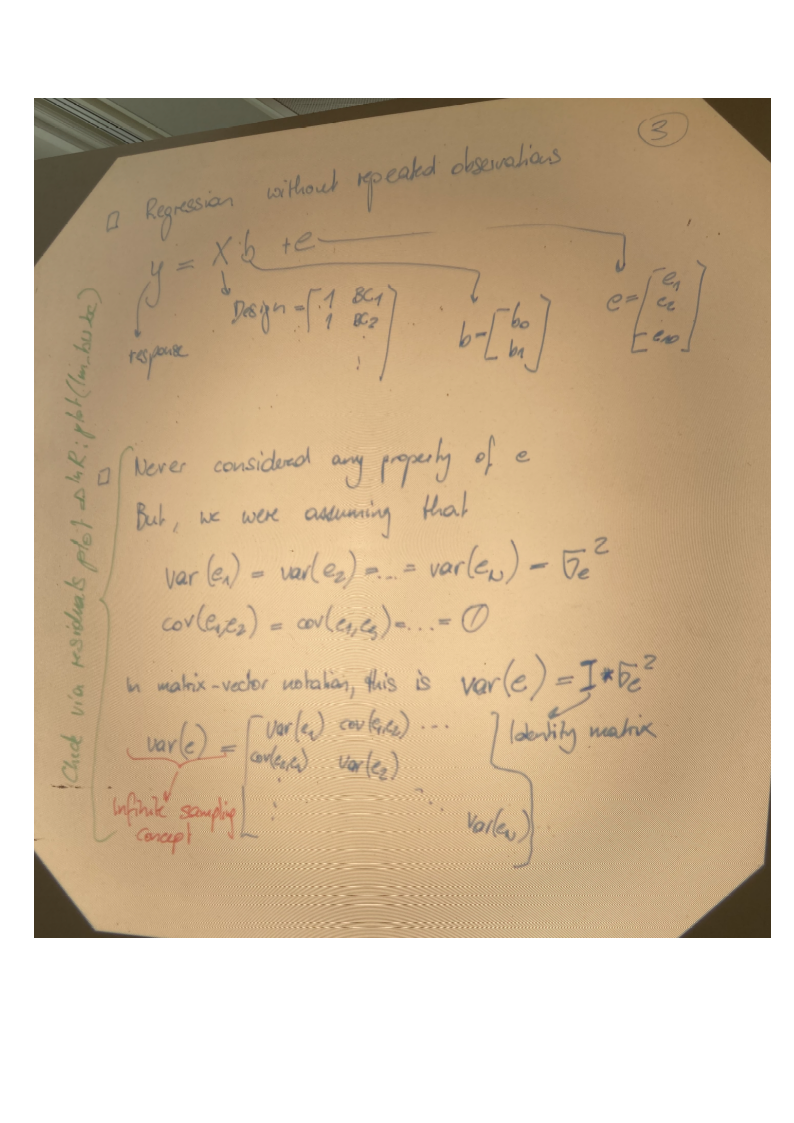 3
□ Regression without repeated observations
y = X·b + e
response
Design = [1 BC1
1 BC2
⋮ ]
b = [b0
b1]
e = [e1
e2
e10]
□ Never considered any property of e
But, we were assuming that
var(e1) = var(e2) = ... = var(eN) = σe²
cov(e1,e2) = cov(e1,e3) = ... = 0
In matrix-vector notation, this is var(e) = I * σe²
Identity matrix
var(e) = [var(e1) cov(e1,e2) ...
cov(e2,e1) var(e2)
⋮ ⋱
var(eN)]
Infinite sampling
concept
Check via residuals plot in R: plot(lm_bw_bc)